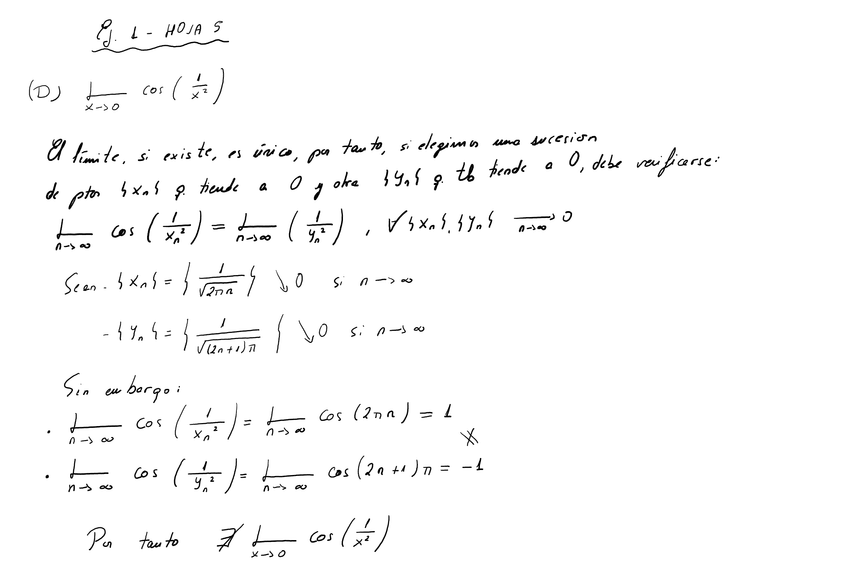 Ej. 1 - HOJA 5
(D) L x->0 cos(1/x²)
El límite, si existe, es único, por tanto, si elegimos una sucesion
de ptos {xₙ} q. tiende a 0 y otra {yₙ} q. tb tiende a 0, debe verificarse:
L n->∞ cos(1/xₙ²) = L n->∞ (1/yₙ²), ∀{xₙ}, {yₙ} →n->∞ 0
Sean - {xₙ} = {1/√(2πn)} ↘0 si n->∞
- {yₙ} = {1/√((2n+1)π)} ↘0 si n->∞
Sin embargo:
• L n->∞ cos(1/xₙ²) = L n->∞ cos(2πn) = 1
• L n->∞ cos(1/yₙ²) = L n->∞ cos(2n+1)π = -1
Por tanto ∄ L x->0 cos(1/x²)